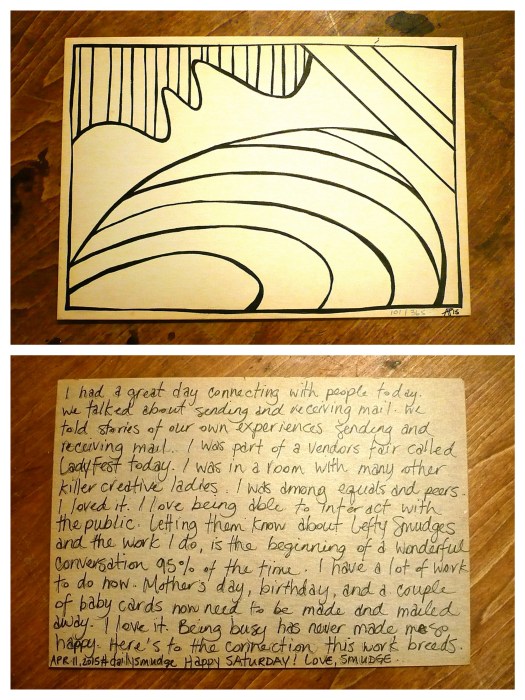 101/365
I had a great day connecting with people today.
We talked about sending and receiving mail. We
told stories of our own experiences sending and
receiving mail. I was part of a vendors fair called
Ladyfest today. I was in a room with many other
killer creative ladies. I was among equals and peers.
I loved it. I love being able to interact with
the public. Letting them know about Lefty Smudges
and the work I do, is the beginning of a wonderful
conversation 95% of the time. I have a lot of work
to do now. Mother's day, birthday, and a couple
of baby cards now need to be made and mailed
away. I love it. Being busy has never made me so
happy. Here's to the connection this work breeds.
APR 11, 2015 #dailysmudge Happy SATURDAY! LOVE, SMUDGE